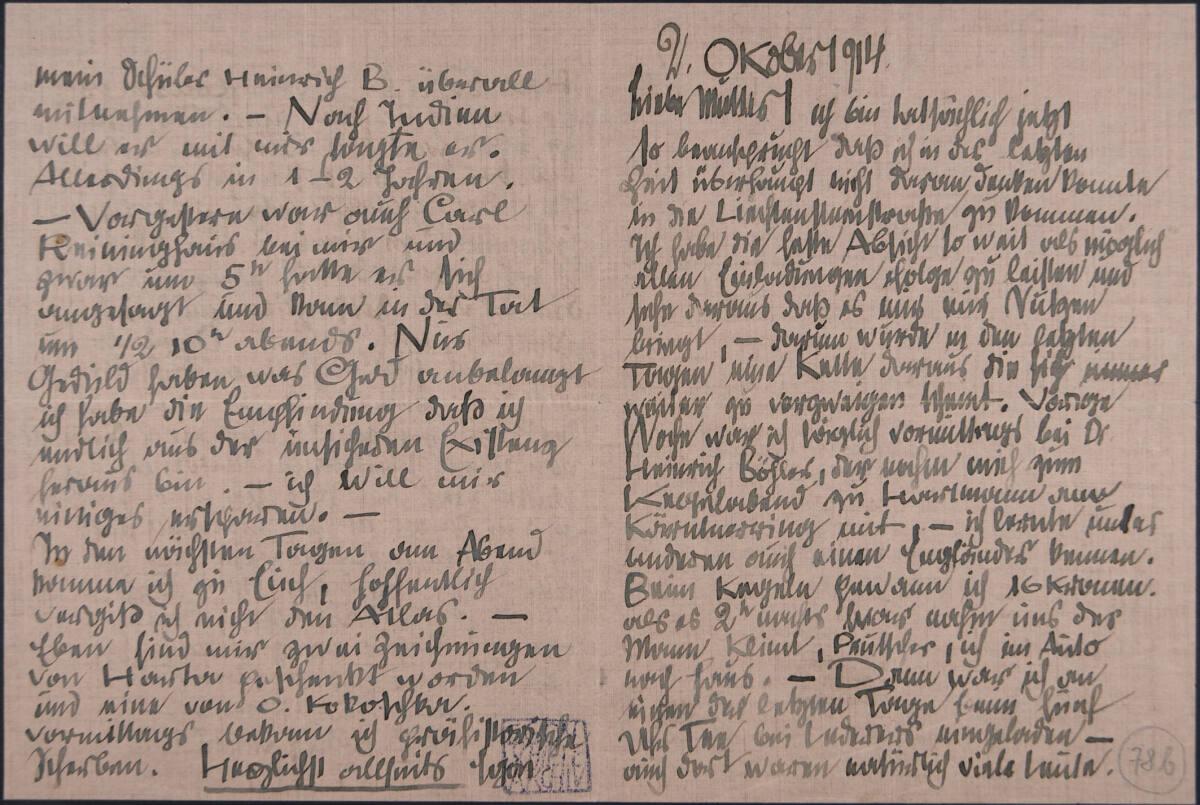 2. Oktober 1914.
Liebe Mutter! ich bin tatsächlich jetzt
so beansprucht daß ich in der letzten
Zeit überhaupt nicht daran denken konnte
in die Liechtensteinstraße zu kommen.
Ich habe die feste Absicht so weit als möglich
allen Einladungen Folge zu leisten und
sehe daraus daß es mir nur Nutzen
bringt, — darum wurde in den letzten
Tagen eine Kette daraus die sich immer
weiter zu verzweigen scheint. Vorige
Woche war ich täglich vormittags bei Dr.
Heinrich Böhler, der nahm mich zum
Kegelabend zu Hartmann am
Kärntnerring mit, — ich lernte unter
anderen auch einen Engländer kennen.
Beim Kegeln gewann ich 16 Kronen.
als es 2h nachts war nahm uns der
Mann Klimt, ich im Auto
nach Haus. — Dann war ich an
einen der letzten Tage beim fünf
Uhr Tee bei Lederers eingeladen —
auch dort waren natürlich viele Leute.
786
mein Schüler Heinrich B. überall
mitnehmen. — Nach Indien
will er mit mir sagte er.
Allerdings in 1–2 Jahren.
— Vorgestern war auch Carl
Reininghaus bei mir und
zwar um 5h hatte er sich
angesagt und kam in der Tat
um 1/2 10h abends. Nur
Geduld haben, was Geld anbelangt
ich habe die Empfindung daß ich
endlich aus der unsicheren Existenz
heraus bin. — ich will mir
einiges ersparen. —
In den nächsten Tagen am Abend
komme ich zu Euch, hoffentlich
vergiß ich nicht den Atlas. —
Eben sind mir zwei Zeichnungen
von Harta geschenkt worden
und eine von O. Kokoschka.
vormittags bekam ich prähistorische
Scherben. Herzlichst allseits Egon